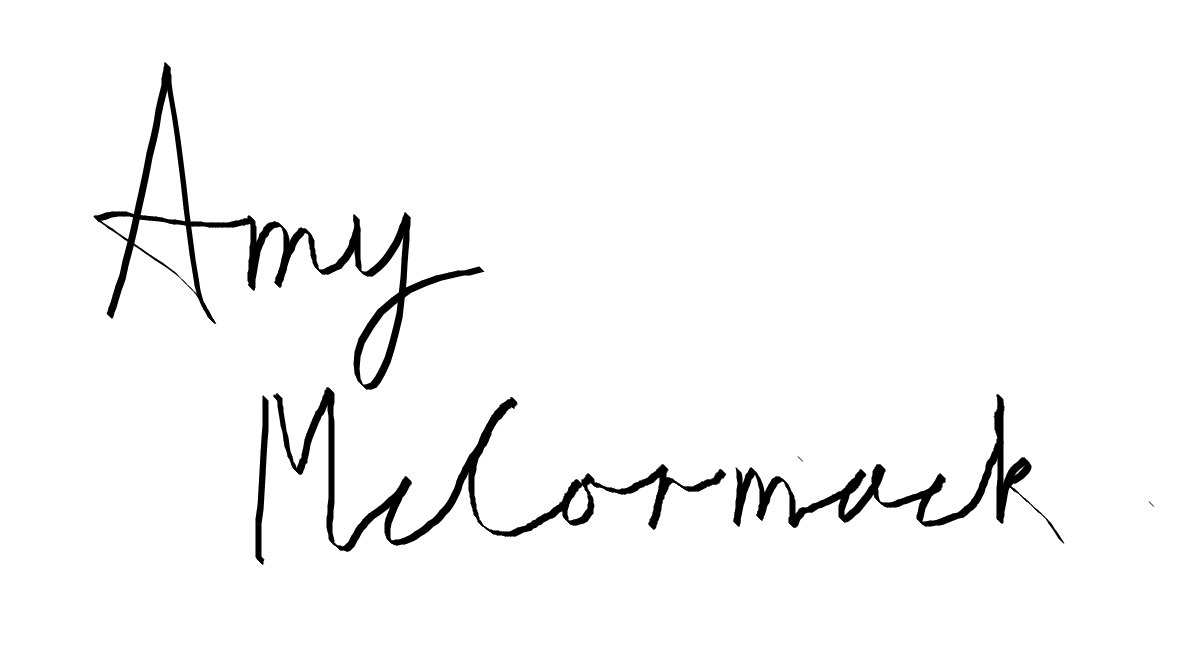 Amy
McCormack